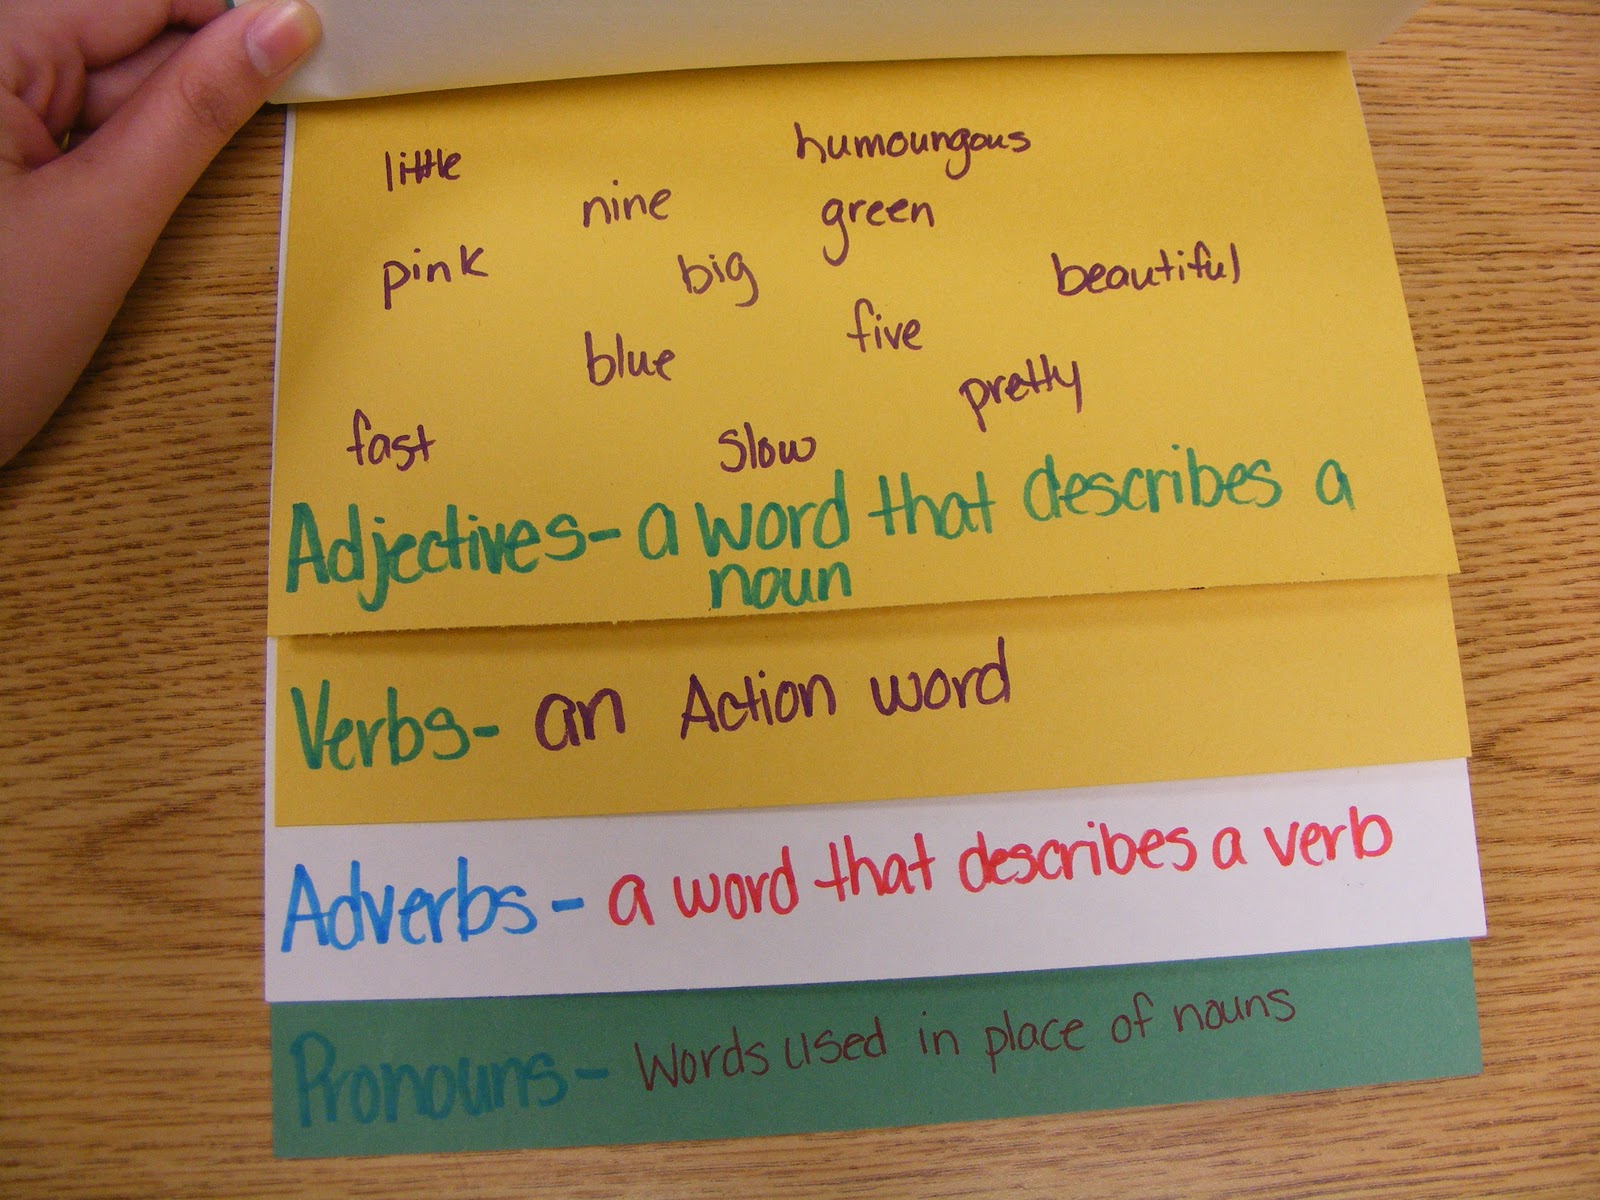 little
humoungous
nine
green
pink
big
beautiful
blue
five
pretty
fast
slow
Adjectives- a word that describes a
noun
Verbs- an Action word
Adverbs - a word that describes a verb
Pronouns- Words used in place of nouns